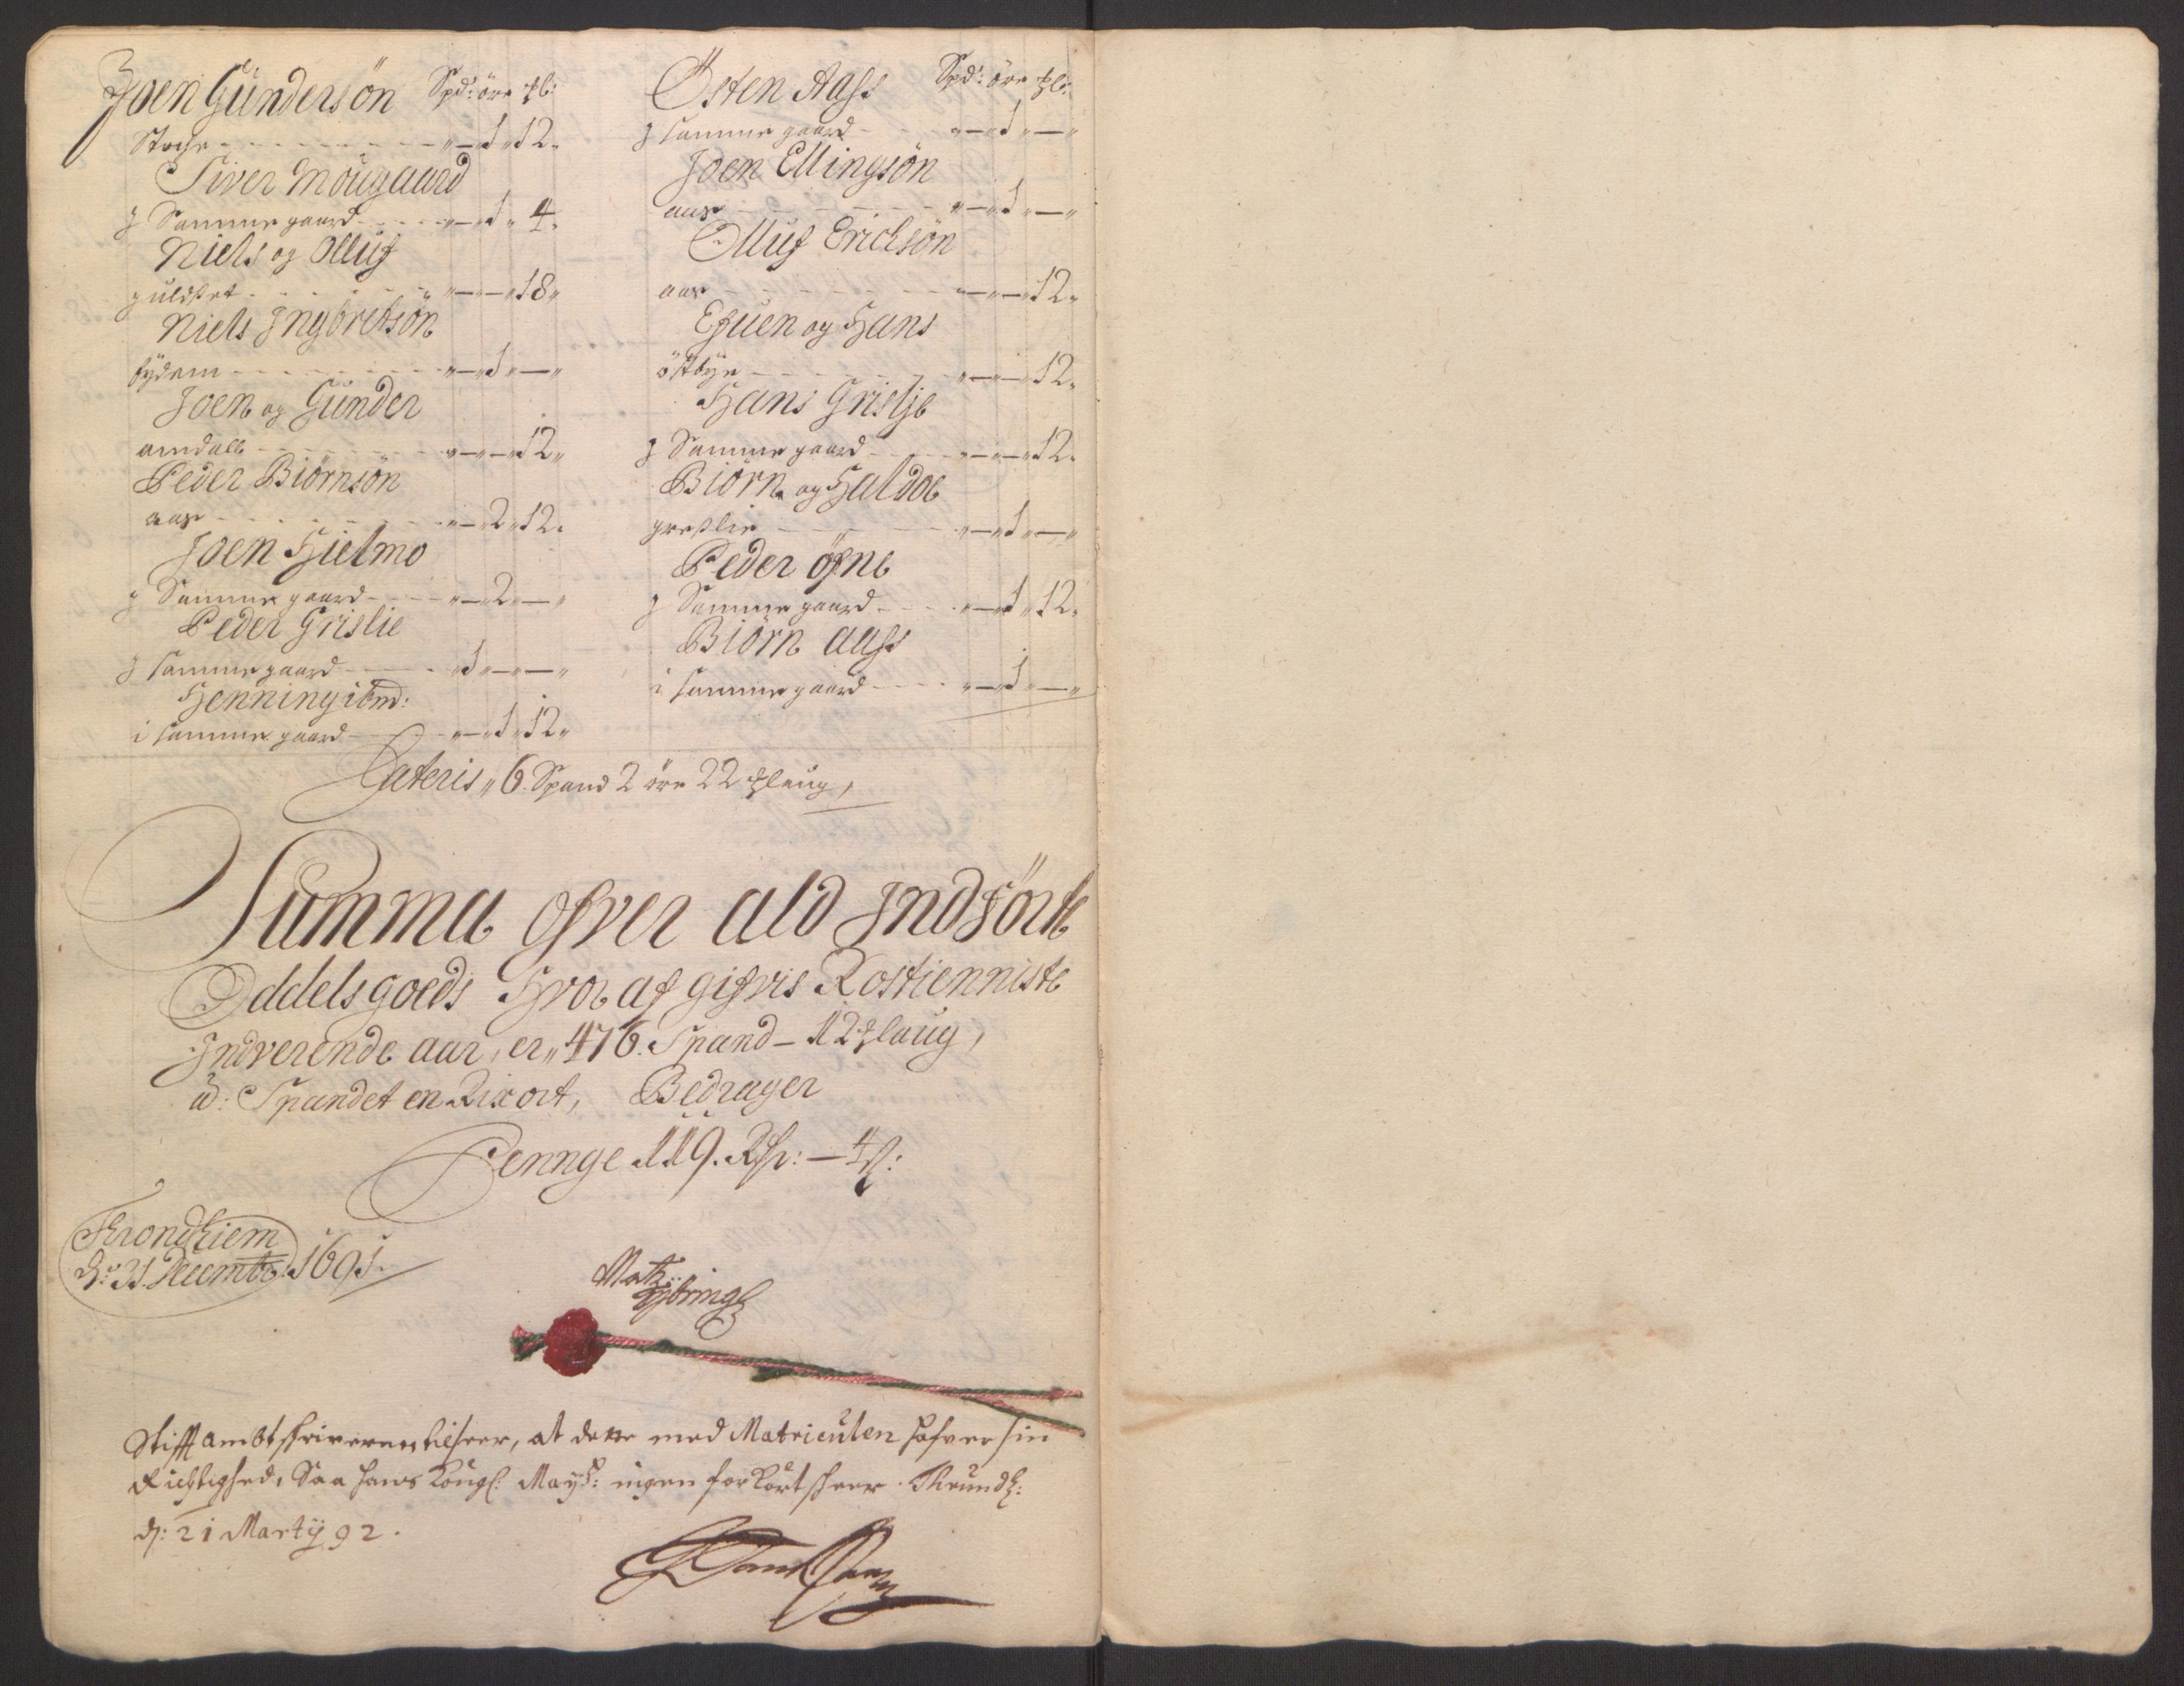 Joen Gundersön Spd: öre ꝑl:
Stoche - - - „ — 1 „ 12 „
Siver Mougaard
J Samme gaard - - - „ — 1 „ 4 „
Niels og Olluf
guldset - - - „ — „ — „ 18 „
Niels Ingbretsön
sydem - - - „ — 1 „ — „
Joen og Gunder
amdall - - - „ — „ — „ 12 „
Peder Biörnsön
aas - - - „ — 2 „ 12 „
Joen Hielmo
J Samme gaard - - - „ — 2 „ — „
Peder Grislie
J samme gaard - - - „ 1 „ — „ — „
Henning ibmd:
i samme gaard - - - „ — 1 „ 12 „
Östen Aass Spd: öre ꝑl:
J samme gaard - - - „ — 1 „ — „
Joen Ellingsön
aas - - - „ — 1 „ — „
Olluf Erichsön
aas - - - „ — „ — 12 „
Efuen og Hans
östbye - - - „ — „ — 12 „
Hans Grislje
J Samme gaard - - - „ — „ — 12 „
Biörn og Haldor
greslie - - - „ — 1 „ — „
Peder öfne
J Samme gaard - - - „ — 1 „ 12 „
Biörn aass
i samme gaard - - - „ — 1 „ — „
Lateris „ 6 Spand 2 öre 22 ꝑlaug,
Summa ofver ald Indförte
Oddelsgoeds Hvor af gifvis Rostienniste
Indverende aar, er „ 476. Spand – 12 ꝑlaug,
â: Spandet en Rixort, Bedrager
Pennge 119. Rdr: – 4 s:
Throndhiem
d: 31. Decembr: 1691.
Stifft ambtskriveren attesterer, at dette med Matriculen hafver sin
Rictighed, Saa hans Kongl: Mayst: ingen forkort skeer. Thrundh:
d: 21 Martij 92.